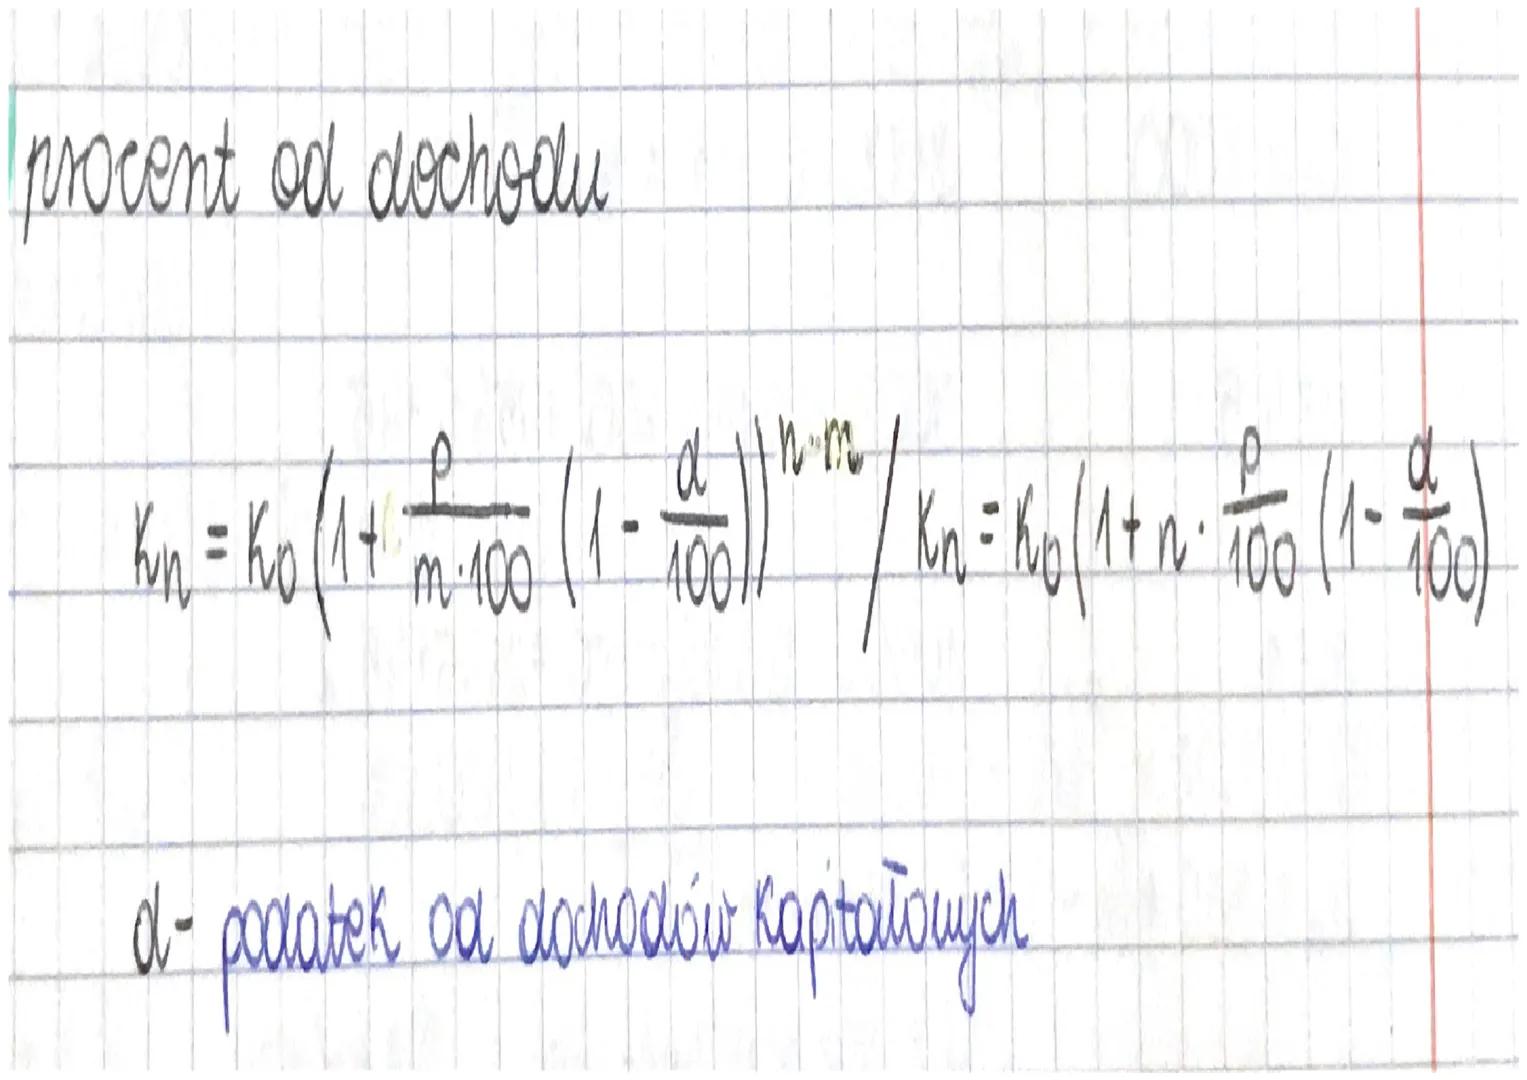 procent od dochodu
Kn = K0 (1 + p/(m·100) (1 - d/100))^(n·m) / Kn = K0 (1 + n · p/100 (1 - d/100)
d - podatek od dochodów kapitałowych